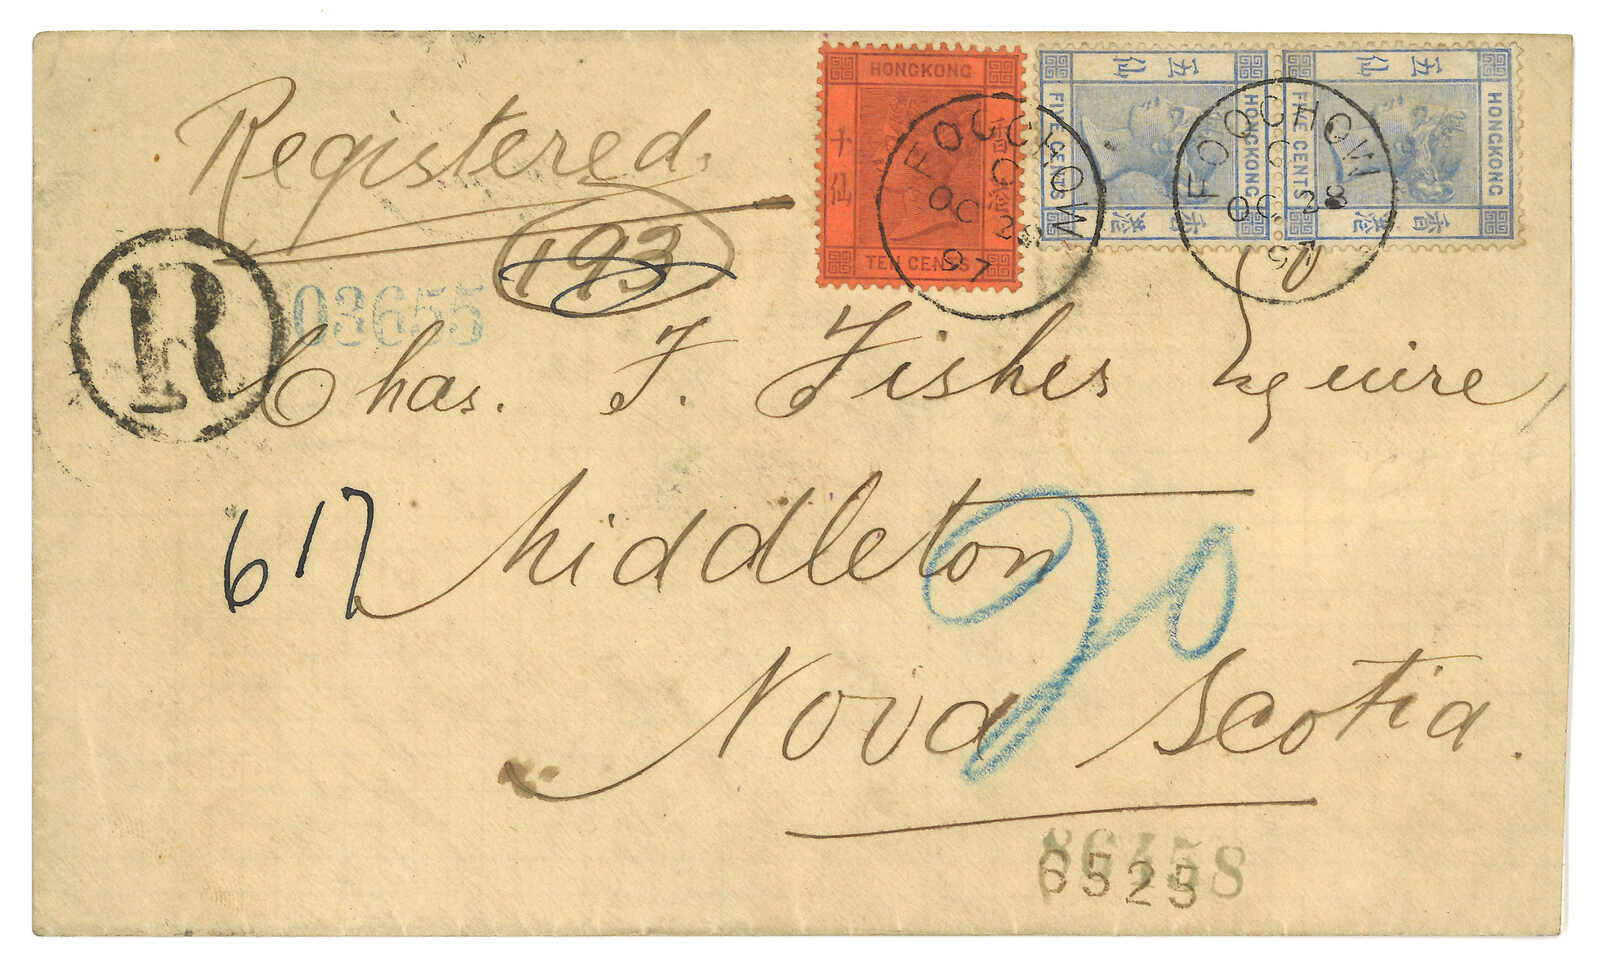 Registered.
193
R
03655
HONGKONG
香港
十仙
TEN CENTS
FOOCHOW
C
OC 28
97
五仙
HONGKONG
FIVE CENTS
香港
FOOCHOW
C
OC 28
97
五仙
HONGKONG
FIVE CENTS
香港
Chas. F. Fisher Esquire,
617 Middleton
Nova Scotia.
86458
6525